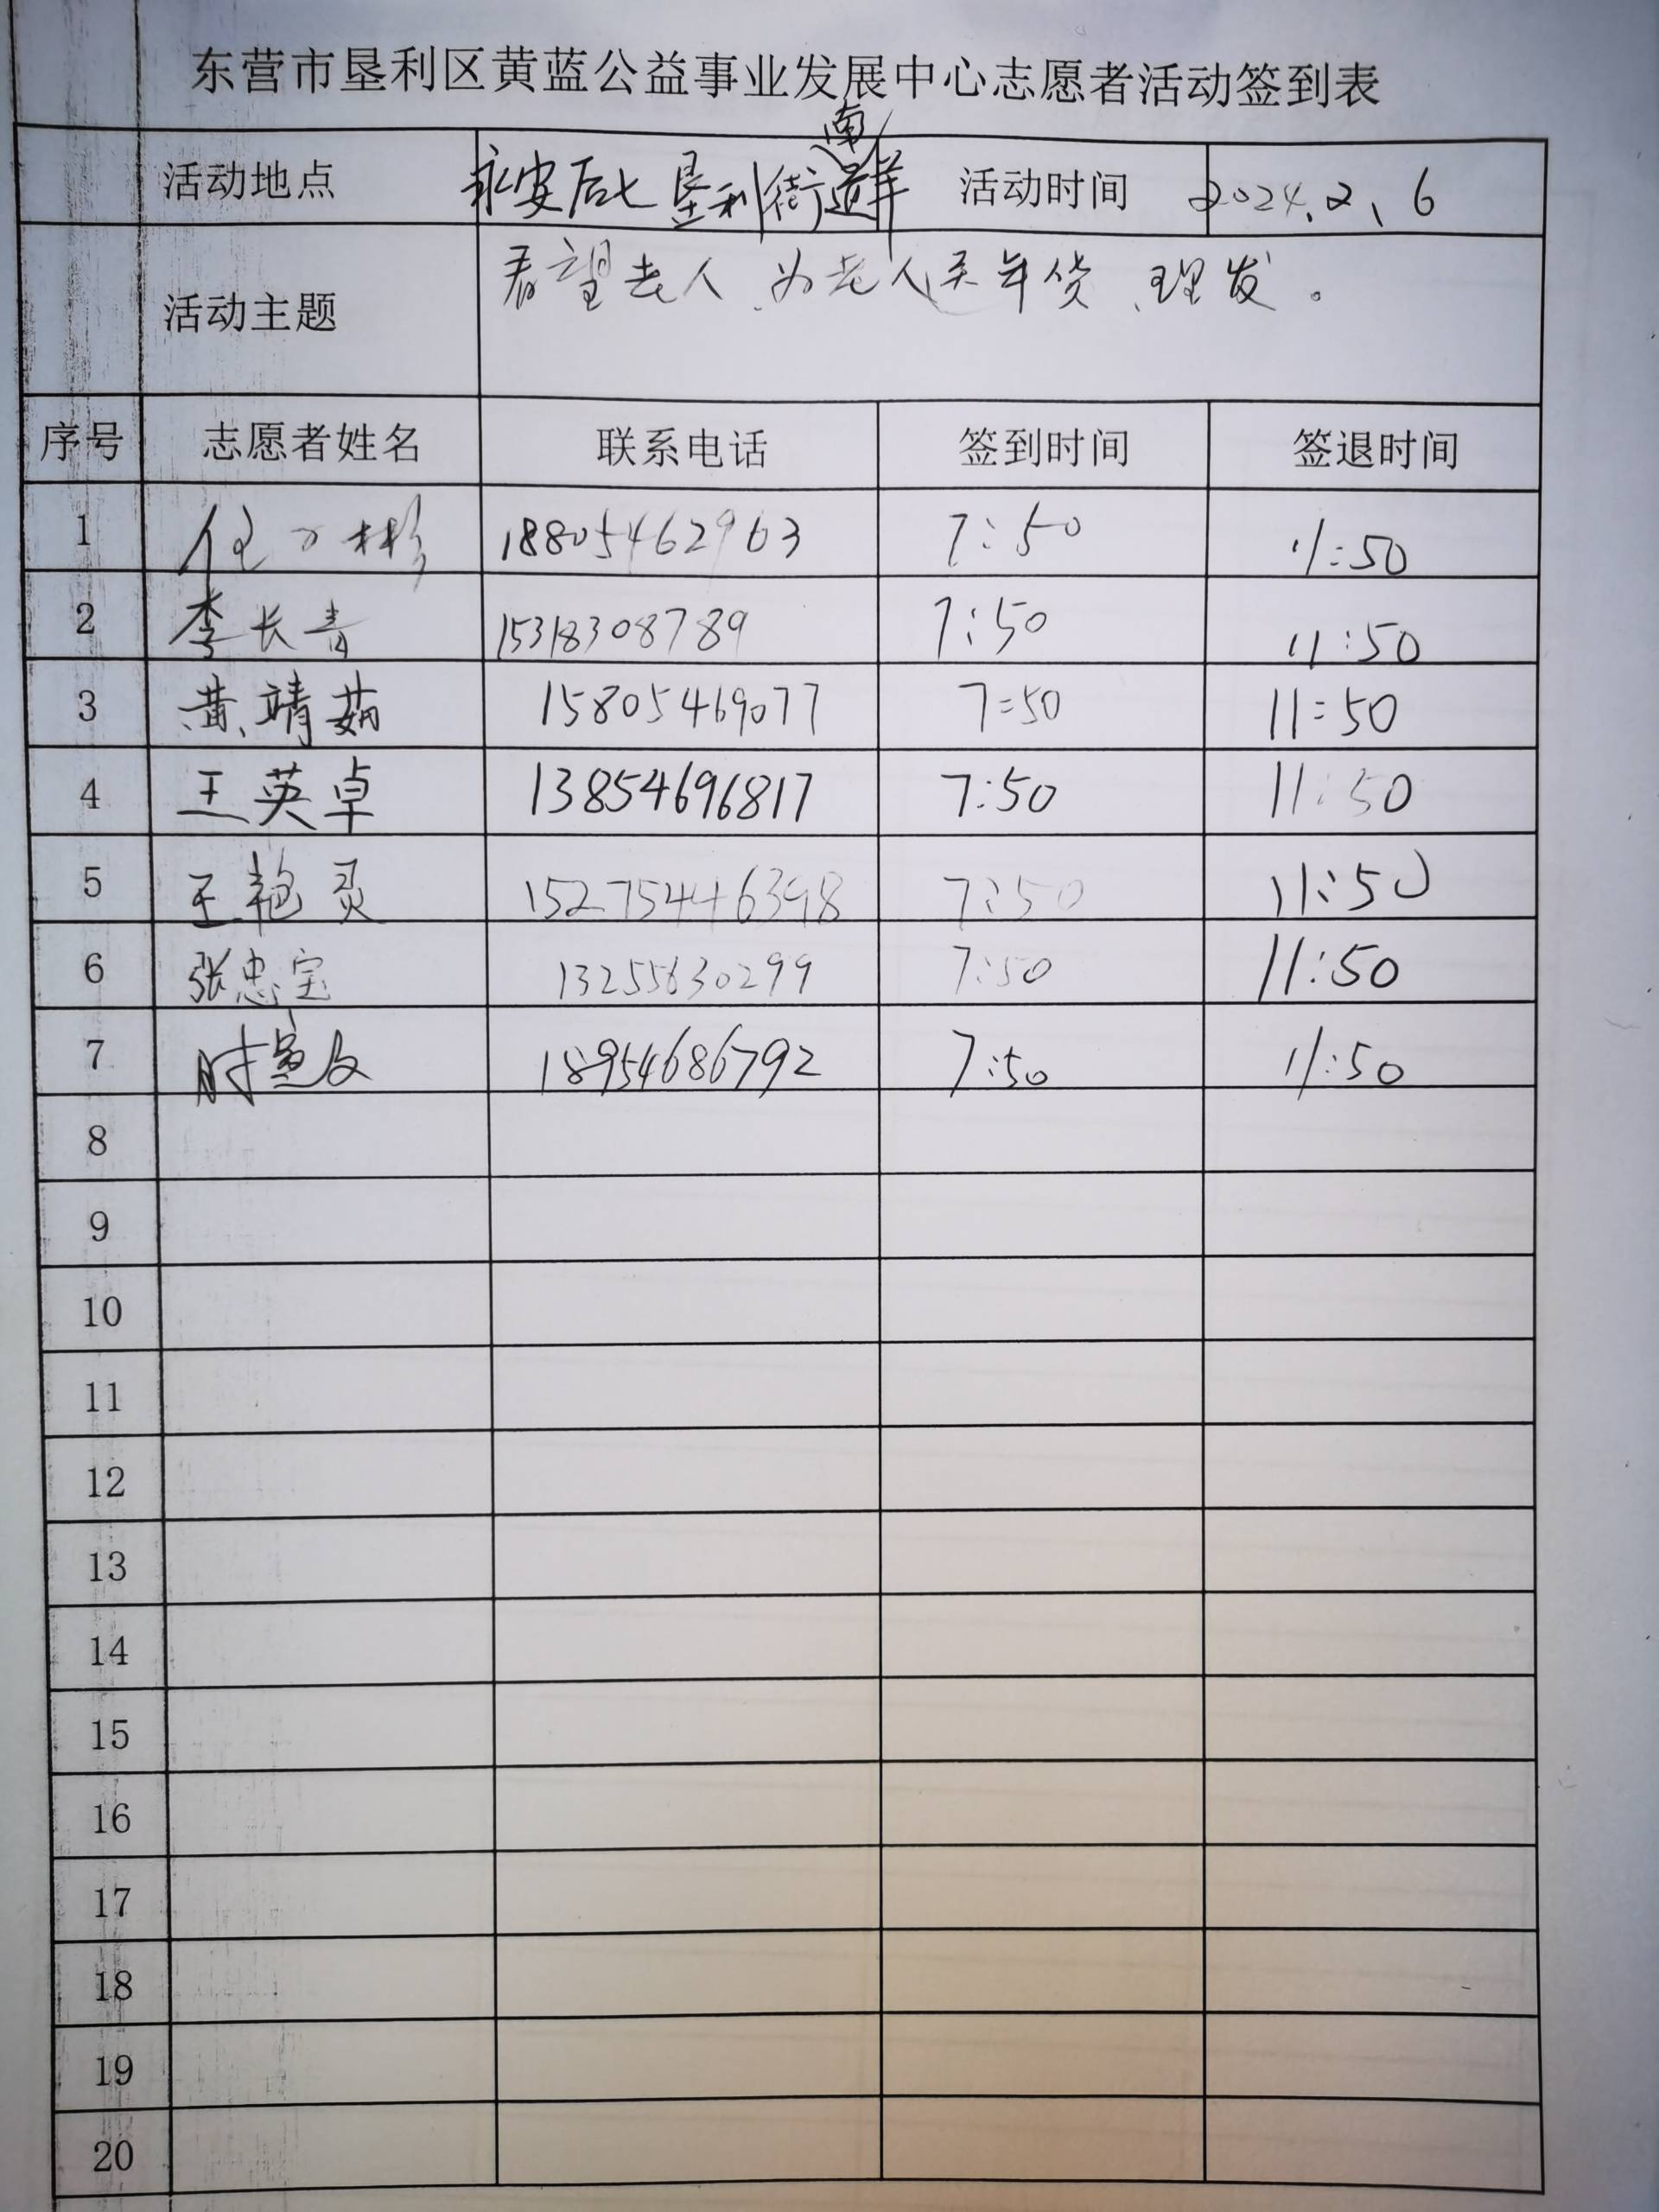 东营市垦利区黄蓝公益事业发展中心志愿者活动签到表
活动地点 永安后七 垦利街道南羊 活动时间 2024.2、6
活动主题 看望老人、为老人买年货、理发。
序号 志愿者姓名 联系电话 签到时间 签退时间
1 彬 18805462963 7:50 11:50
2 李长青 15318308789 7:50 11:50
3 黄靖茹 15805469077 7:50 11:50
4 王英卓 13854696817 7:50 11:50
5 王艳灵 15275446398 7:50 11:50
6 张忠宝 13255630299 7:50 11:50
7 时 18954686792 7:50 11:50
8
9
10
11
12
13
14
15
16
17
18
19
20